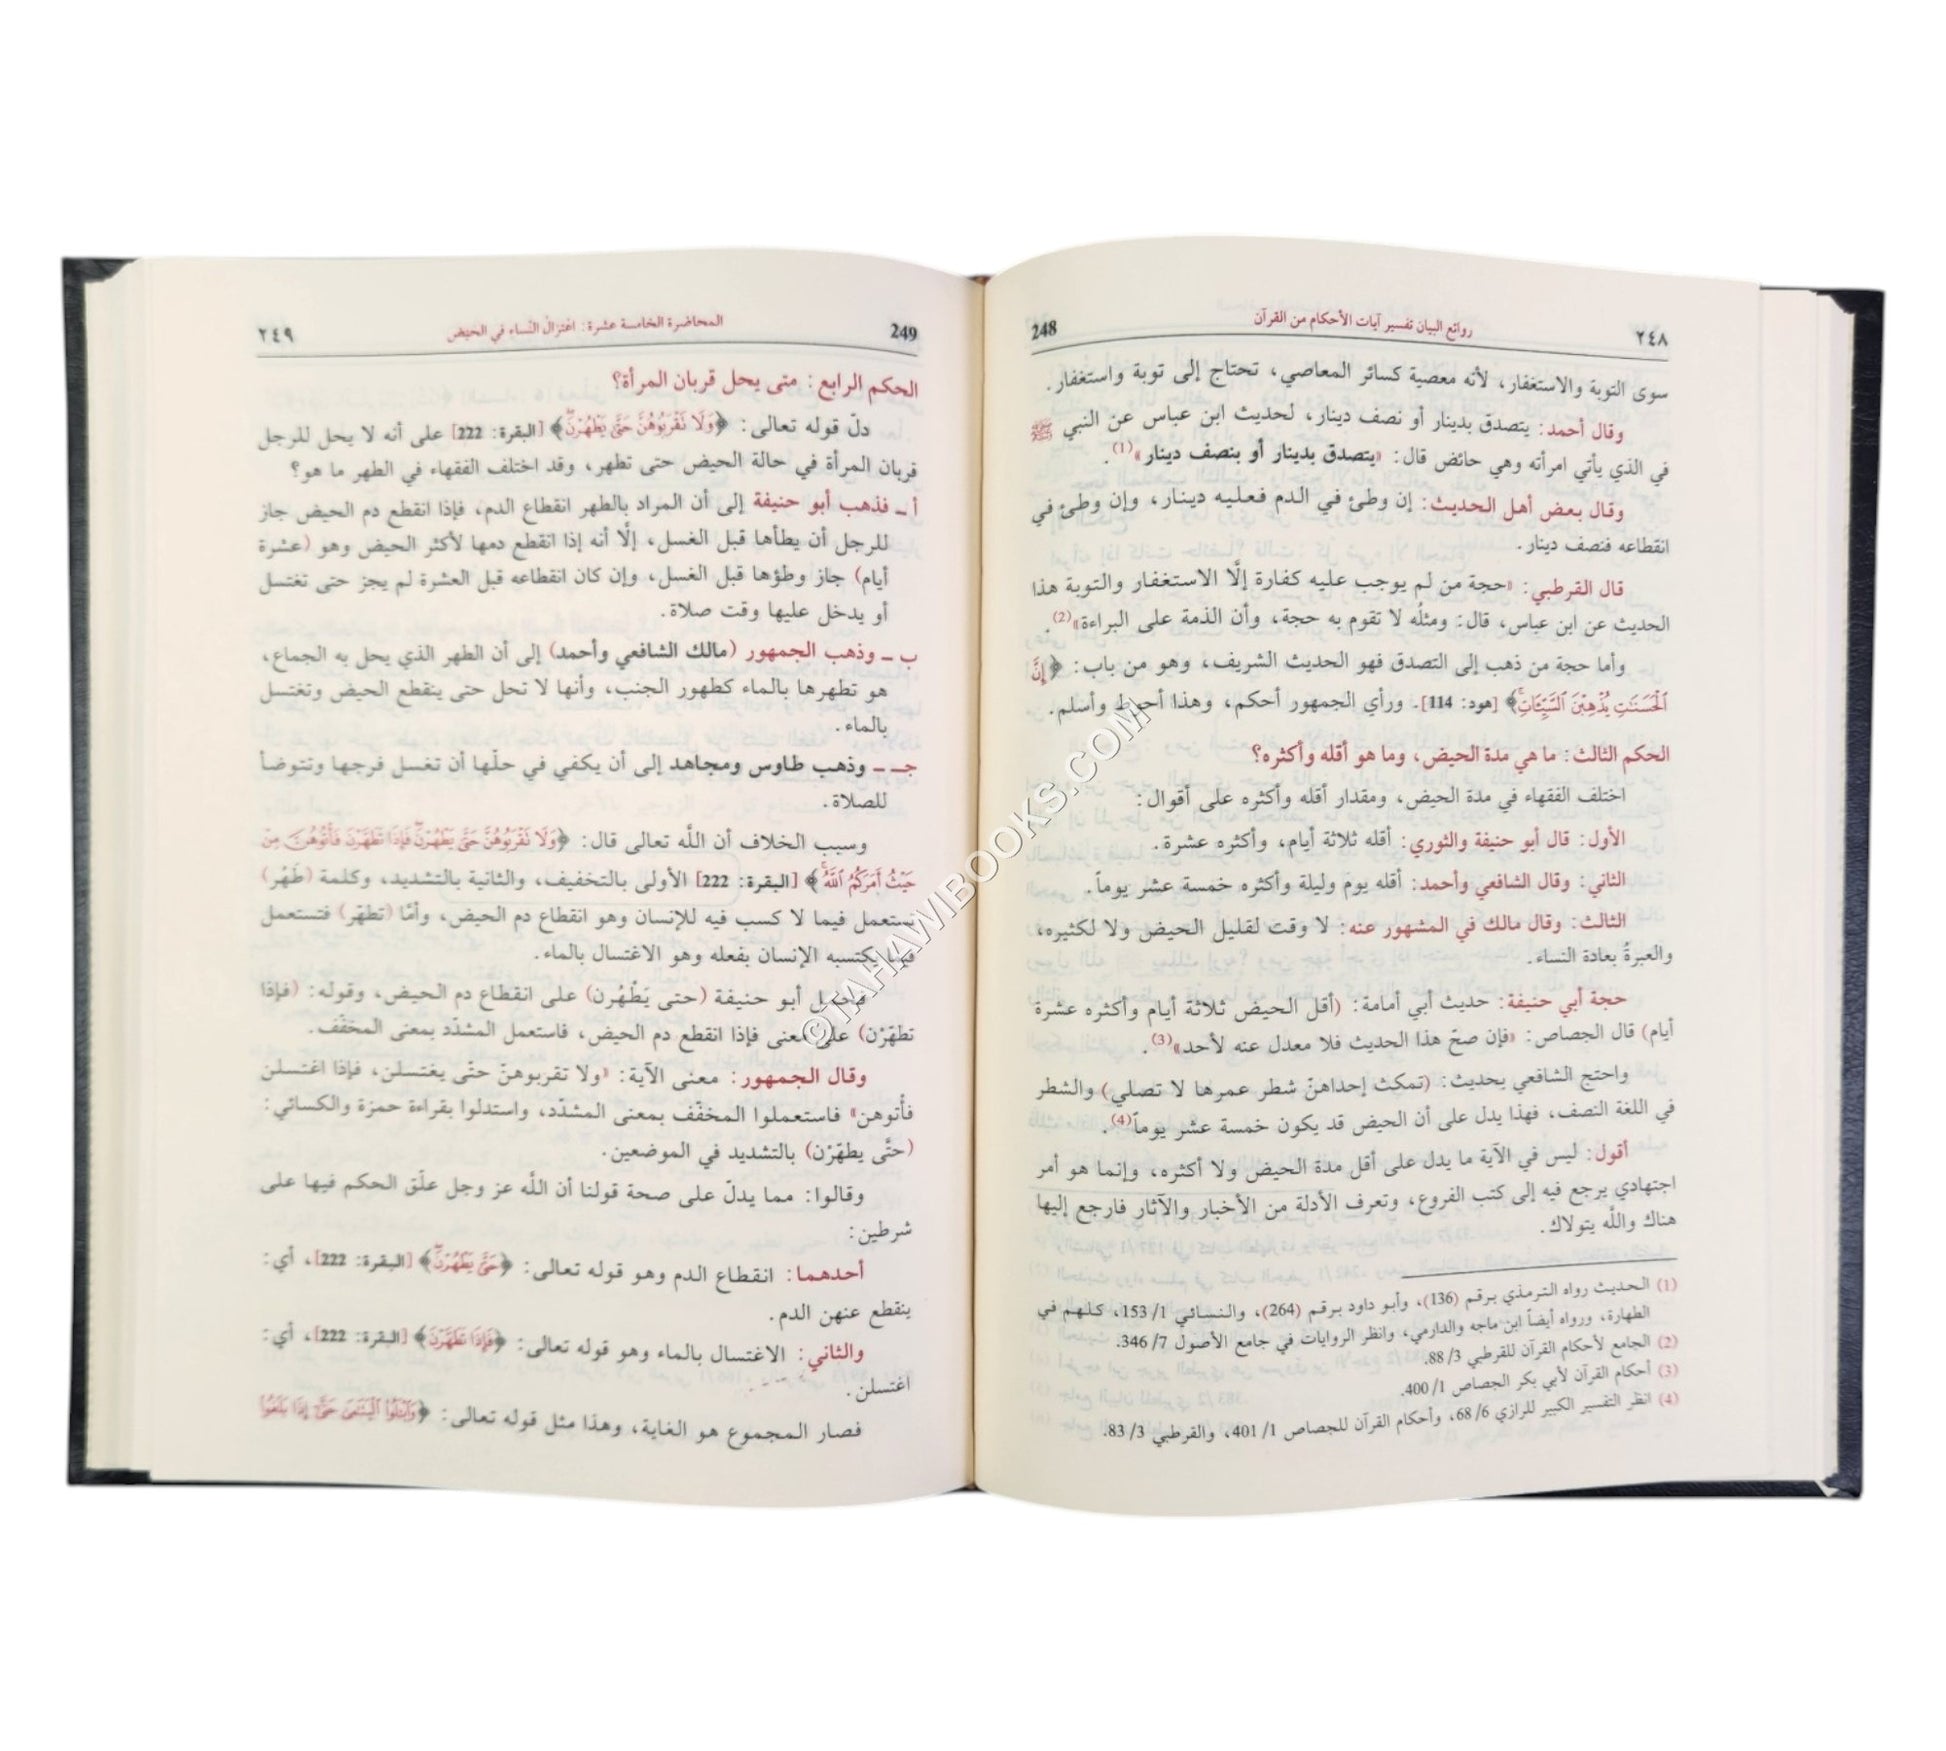 ٢٤٨ روائع البيان تفسير آيات الأحكام من القرآن 248
سوى التوبة والاستغفار، لأنه معصية كسائر المعاصي، تحتاج إلى توبة واستغفار.
وقال أحمد: يتصدق بدينار أو نصف دينار، لحديث ابن عباس عن النبي ﷺ
في الذي يأتي امرأته وهي حائض قال: «يتصدق بدينار أو بنصف دينار»(1).
وقال بعض أهل الحديث: إن وطئ في الدم فعليه دينار، وإن وطئ في
انقطاعه فنصف دينار.
قال القرطبي: «حجة من لم يوجب عليه كفارة إلَّا الاستغفار والتوبة هذا
الحديث عن ابن عباس، قال: ومثلُه لا تقوم به حجة، وأن الذمة على البراءة»(2).
وأما حجة من ذهب إلى التصدق فهو الحديث الشريف، وهو من باب: ﴿إِنَّ
ٱلْحَسَنَٰتِ يُذْهِبْنَ ٱلسَّيِّـَٔاتِ﴾ [هود: 114]. ورأي الجمهور أحكم، وهذا أحوط وأسلم.
الحكم الثالث: ما هي مدة الحيض، وما هو أقله وأكثره؟
اختلف الفقهاء في مدة الحيض، ومقدار أقله وأكثره على أقوال:
الأول: قال أبو حنيفة والثوري: أقله ثلاثة أيام، وأكثره عشرة.
الثاني: وقال الشافعي وأحمد: أقله يوم وليلة وأكثره خمسة عشر يوماً.
الثالث: وقال مالك في المشهور عنه: لا وقت لقليل الحيض ولا لكثيره،
والعبرةُ بعادة النساء.
حجة أبي حنيفة: حديث أبي أمامة: (أقل الحيض ثلاثة أيام وأكثره عشرة
أيام) قال الجصاص: «فإن صحّ هذا الحديث فلا معدل عنه لأحد»(3).
واحتج الشافعي بحديث: (تمكث إحداهنّ شطر عمرها لا تصلي) والشطر
في اللغة النصف، فهذا يدل على أن الحيض قد يكون خمسة عشر يوماً(4).
أقول: ليس في الآية ما يدل على أقل مدة الحيض ولا أكثره، وإنما هو أمر
اجتهادي يرجع فيه إلى كتب الفروع، وتعرف الأدلة من الأخبار والآثار فارجع إليها
هناك والله يتولاك.
(1) الحديث رواه الترمذي برقم (136)، وأبو داود برقم (264)، والنسائي 1/ 153، كلهم في
الطهارة، ورواه أيضاً ابن ماجه والدارمي، وانظر الروايات في جامع الأصول 7/ 346.
(2) الجامع لأحكام القرآن للقرطبي 3/ 88.
(3) أحكام القرآن لأبي بكر الجصاص 1/ 400.
(4) انظر التفسير الكبير للرازي 6/ 68، وأحكام القرآن للجصاص 1/ 401، والقرطبي 3/ 83.
249 المحاضرة الخامسة عشرة: اعتزالُ النساء في الحيض ٢٤٩
الحكم الرابع: متى يحل قربان المرأة؟
دلّ قوله تعالى: ﴿وَلَا نَقْرَبُوهُنَّ حَتَّىٰ يَطْهُرْنَ﴾ [البقرة: 222] على أنه لا يحل للرجل
قربان المرأة في حالة الحيض حتى تطهر، وقد اختلف الفقهاء في الطهر ما هو؟
أ ـ فذهب أبو حنيفة إلى أن المراد بالطهر انقطاع الدم، فإذا انقطع دم الحيض جاز
للرجل أن يطأها قبل الغسل، إلَّا أنه إذا انقطع دمها لأكثر الحيض وهو (عشرة
أيام) جاز وطؤها قبل الغسل، وإن كان انقطاعه قبل العشرة لم يجز حتى تغتسل
أو يدخل عليها وقت صلاة.
ب ـ وذهب الجمهور (مالك الشافعي وأحمد) إلى أن الطهر الذي يحل به الجماع،
هو تطهرها بالماء كطهور الجنب، وأنها لا تحل حتى ينقطع الحيض وتغتسل
بالماء.
جـ ـ وذهب طاوس ومجاهد إلى أن يكفي في حلّها أن تغسل فرجها وتتوضأ
للصلاة.
وسبب الخلاف أن الله تعالى قال: ﴿وَلَا نَقْرَبُوهُنَّ حَتَّىٰ يَطْهُرْنَ فَإِذَا تَطَهَّرْنَ فَأْتُوهُنَّ مِنْ
حَيْثُ أَمَرَكُمُ ٱللَّهُ﴾ [البقرة: 222] الأولى بالتخفيف، والثانية بالتشديد، وكلمة (طَهُر)
تستعمل فيما لا كسب فيه للإنسان وهو انقطاع دم الحيض، وأمَّا (تطهّر) فتستعمل
فيما يكتسبه الإنسان بفعله وهو الاغتسال بالماء.
فحمل أبو حنيفة (حتى يَطْهُرن) على انقطاع دم الحيض، وقوله: (فإذا
تطهّرْن) على معنى فإذا انقطع دم الحيض، فاستعمل المشدّد بمعنى المخفّف.
وقال الجمهور: معنى الآية: «ولا تقربوهنّ حتّى يغتسلن، فإذا اغتسلن
فأتوهن» فاستعملوا المخفّف بمعنى المشدّد، واستدلوا بقراءة حمزة والكسائي:
(حتَّى يطهّرْن) بالتشديد في الموضعين.
وقالوا: مما يدلّ على صحة قولنا أن الله عز وجل علّق الحكم فيها على
شرطين:
أحدهما: انقطاع الدم وهو قوله تعالى: ﴿حَتَّىٰ يَطْهُرْنَ﴾ [البقرة: 222]، أي:
ينقطع عنهن الدم.
والثاني: الاغتسال بالماء وهو قوله تعالى: ﴿فَإِذَا تَطَهَّرْنَ﴾ [البقرة: 222]، أي:
اغتسلن.
فصار المجموع هو الغاية، وهذا مثل قوله تعالى: ﴿وَٱبْتَلُوا۟ ٱلْيَتَٰمَىٰ حَتَّىٰٓ إِذَا بَلَغُوا۟
©TAHAWIBOOKS.COM